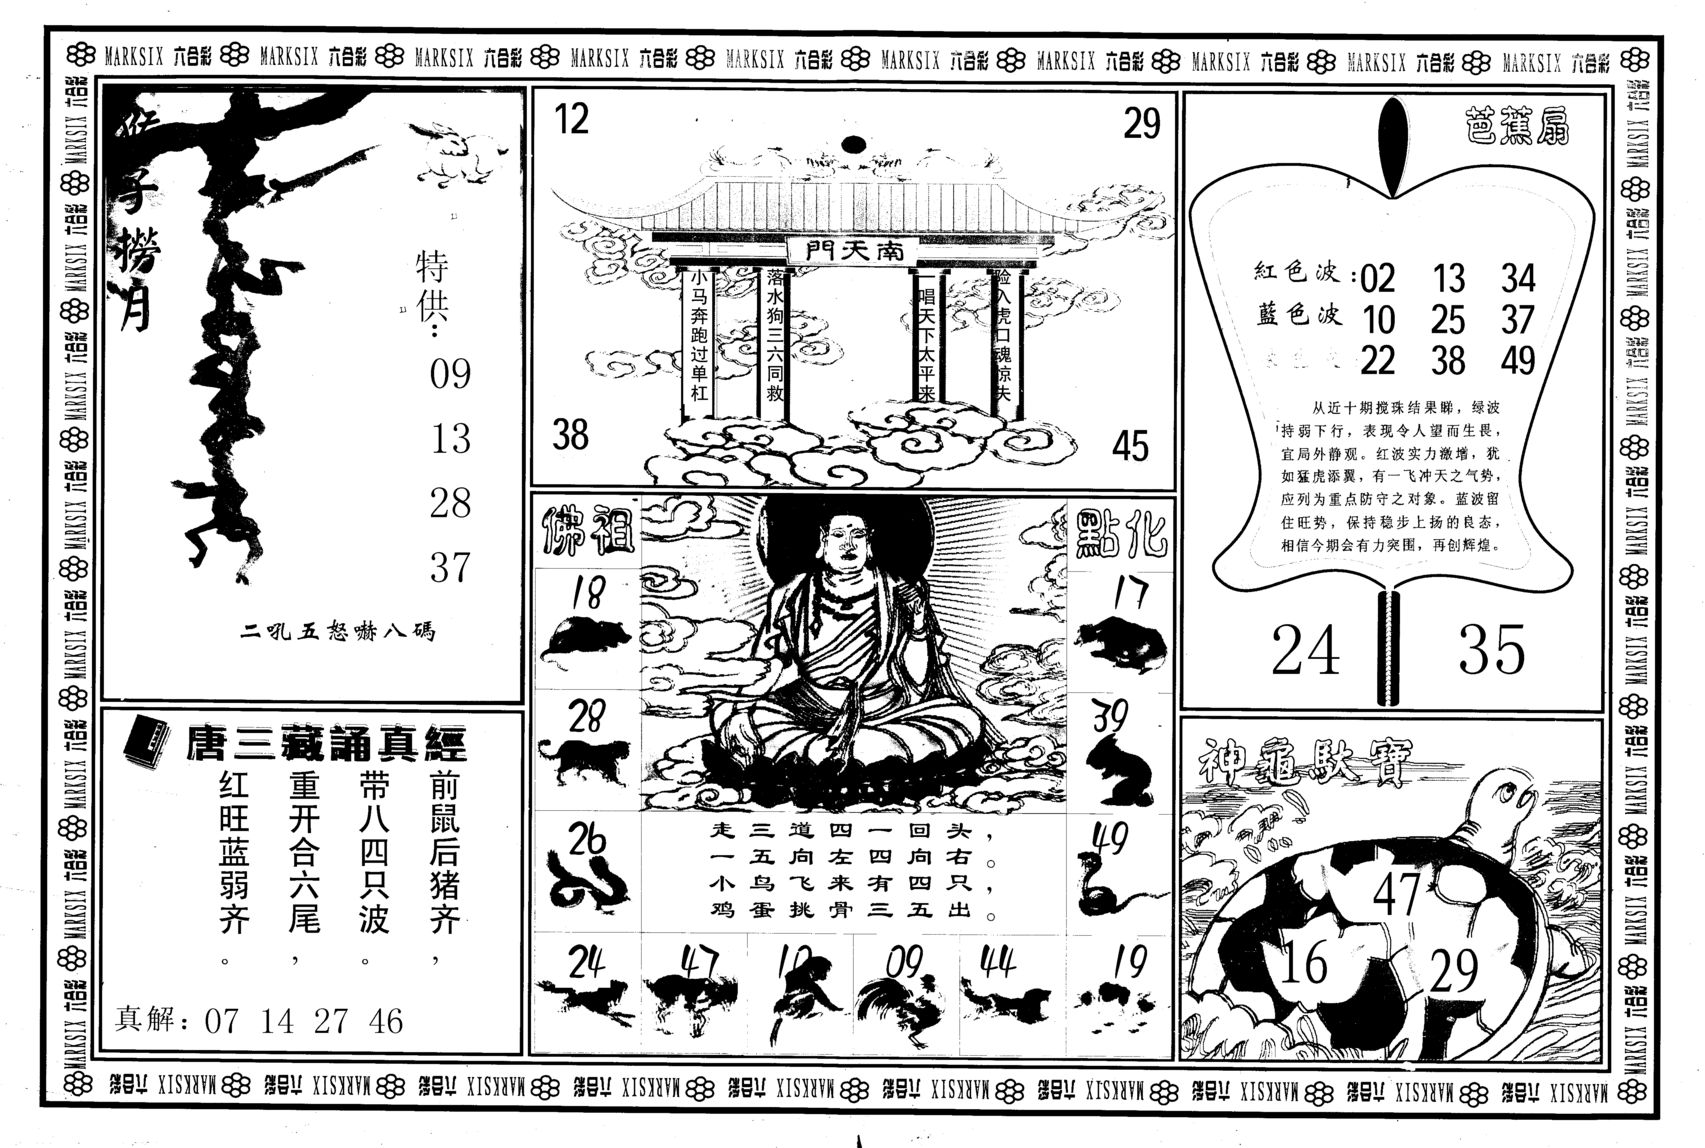 MARKSIX 六合彩 MARKSIX 六合彩 MARKSIX 六合彩 MARKSIX 六合彩 MARKSIX 六合彩 MARKSIX 六合彩 MARKSIX 六合彩 MARKSIX 六合彩 MARKSIX 六合彩 MARKSIX 六合彩
猴子撈月
特供：
09
13
28
37
二吼五怒嚇八碼
唐三藏誦真經
前鼠后猪齐，
带八四只波。
重开合六尾，
红旺蓝弱齐。
真解：07 14 27 46
12
29
門天南
小马奔跑过单杠
落水狗三六同救
一唱天下太平来
险入虎口魂惊失
38
45
佛祖
點化
18
17
28
39
26
49
走三道四一回头，
一五向左四向右。
小鸟飞来有四只，
鸡蛋挑骨三五出。
24 47 10 09 44 19
芭蕉扇
紅色波：02 13 34
藍色波 10 25 37
22 38 49
从近十期搅珠结果睇，绿波
持弱下行，表现令人望而生畏，
宜局外静观。红波实力激增，犹
如猛虎添翼，有一飞冲天之气势，
应列为重点防守之对象。蓝波留
住旺势，保持稳步上扬的良态，
相信今期会有力突围，再创辉煌。
24
35
神龜馱寶
47
16
29